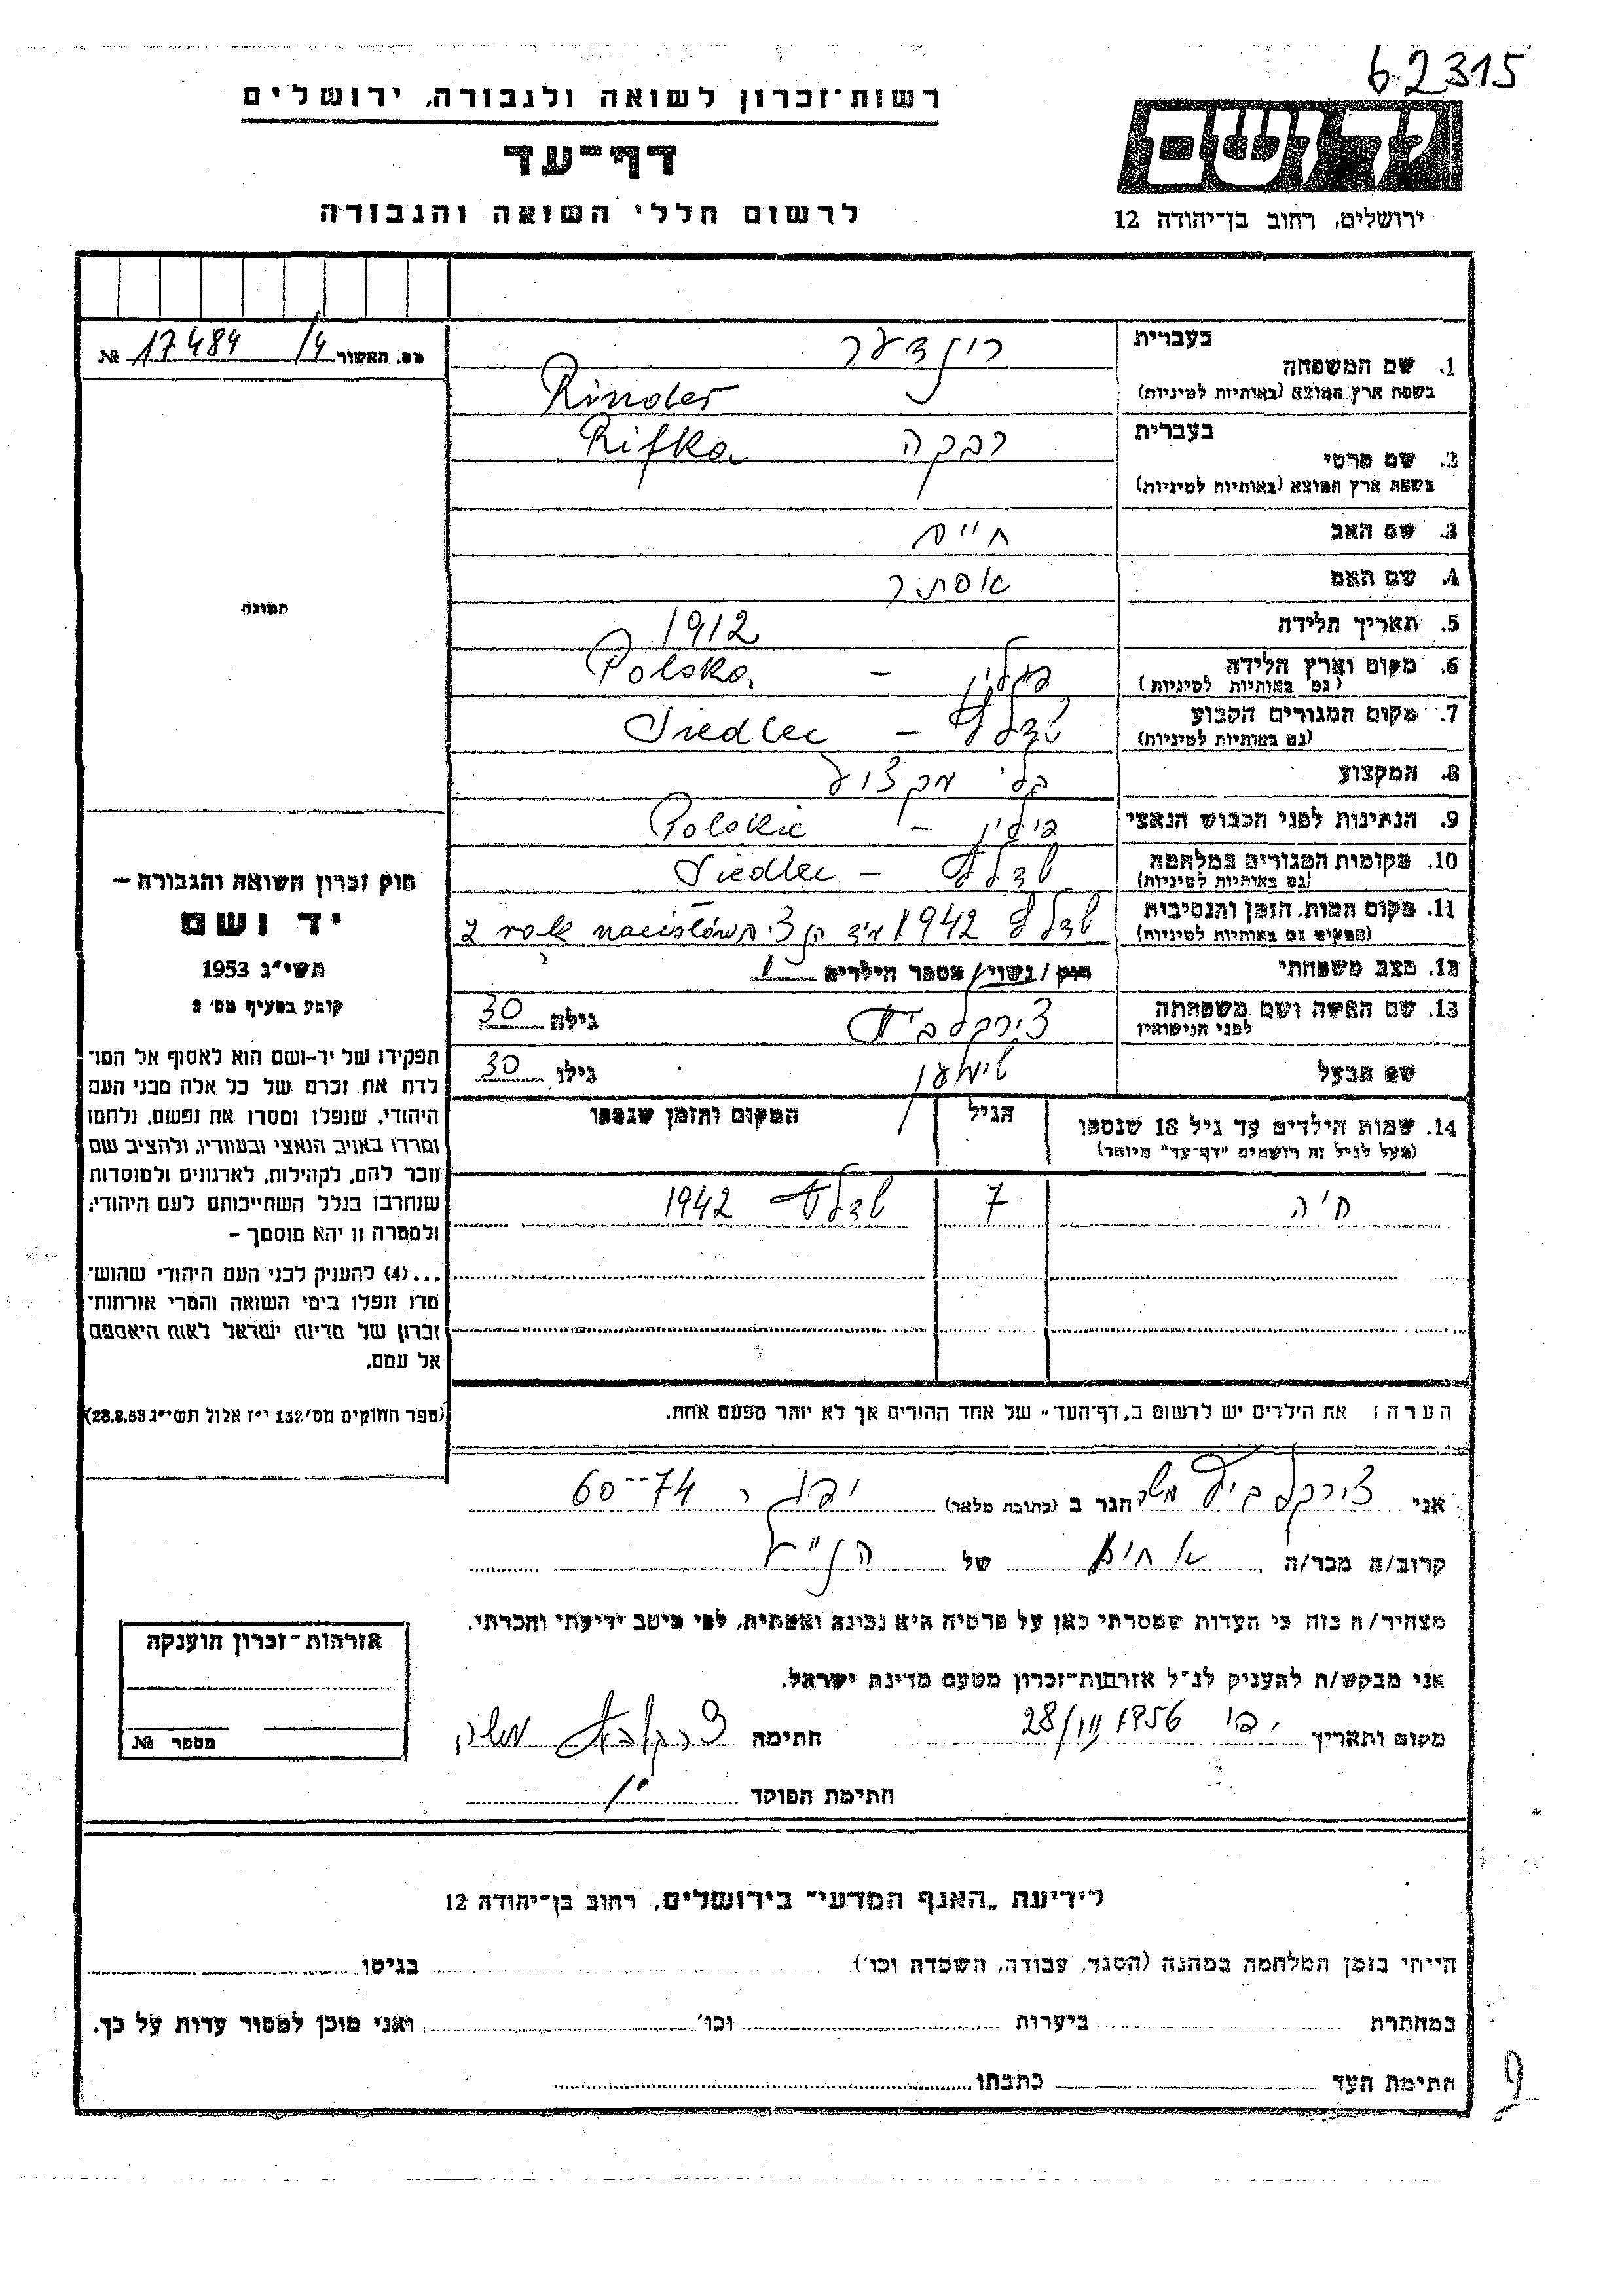 62315
רשות־זכרון לשואה ולגבורה, ירושלים
דף־עד
לרשום חללי השואה והגבורה
ידושם
ירושלים, רחוב בן־יהודה 12
מס. האשור 17484 /4 №
תמונה
1. שם המשפחה
בעברית רינדער
בשפת ארץ המוצא (באותיות לטיניות) Rinder
2. שם פרטי
בעברית רבקה Rifka
בשפת ארץ המוצא (באותיות לטיניות)
3. שם האב חיים
4. שם האם אסתר
5. תאריך הלידה 1912
6. מקום וארץ הלידה פולין – Polska
(גם באותיות לטיניות)
7. מקום המגורים הקבוע שדלץ – Siedlec
(גם באותיות לטיניות)
8. המקצוע בלי מקצוע
9. הנתינות לפני הכבוש הנאצי פולין – Polskie
10. מקומות המגורים במלחמה שדלץ – Siedlec
(גם באותיות לטיניות)
11. מקום המות, הזמן והנסיבות שדלץ 1942 מיד הנצים z rąk
(המקום גם באותיות לטיניות)
12. מצב משפחתי רוק / נשוי / מספר הילדים 1
13. שם האשה ושם משפחתה צירקלביץ גילה 30
לפני הנישואין
שם הבעל שימען גילו 30
14. שמות הילדים עד גיל 18 שנספו הגיל המקום והזמן שנספו
(מעל לגיל זה רושמים "דף־עד" מיוחד)
חיה 7 שדלץ 1942
הערה: את הילדים יש לרשום ב"דף־העד" של אחד ההורים אך לא יותר מפעם אחת.
חוק זכרון השואה והגבורה —
יד ושם
תשי"ג 1953
קובע בסעיף מס' 2
תפקידו של יד-ושם הוא לאסוף אל המו־
לדת את זכרם של כל אלה מבני העם
היהודי, שנפלו ומסרו את נפשם, נלחמו
ומרדו באויב הנאצי ובעוזריו, ולהציב שם
וזכר להם, לקהילות, לארגונים ולמוסדות
שנחרבו בגלל השתייכותם לעם היהודי;
ולמטרה זו יהא מוסמך –
...(4) להעניק לבני העם היהודי שהוש־
מדו ונפלו בימי השואה והמרי אזרחות־
זכרון של מדינת ישראל לאות היאספם
אל עמם.
(ספר החוקים מס' 132 י"ז אלול תשי"ג 28.8.53)
אני צירקלביץ משה הגר ב (כתובת מלאה) 74 60
קרוב/ה מכר/ה אחים של הנ"ל
מצהיר/ה בזה כי העדות שמסרתי כאן על פרטיה היא נכונה ואמתית, לפי מיטב ידיעתי והכרתי.
אני מבקש/ת להעניק לנ"ל אזרחות־זכרון מטעם מדינת ישראל.
מקום ותאריך 28/ 1956 חתימה צירקלביץ משה
חתימת הפוקד
אזרחות־זכרון הוענקה
מספר №
לידיעת "האגף המדעי" בירושלים, רחוב בן־יהודה 12
הייתי בזמן המלחמה במחנה (הסגר, עבודה, השמדה וכו') בגיטו
במחתרת ביערות וכו' ואני מוכן למסור עדות על כך.
חתימת העד כתבתו